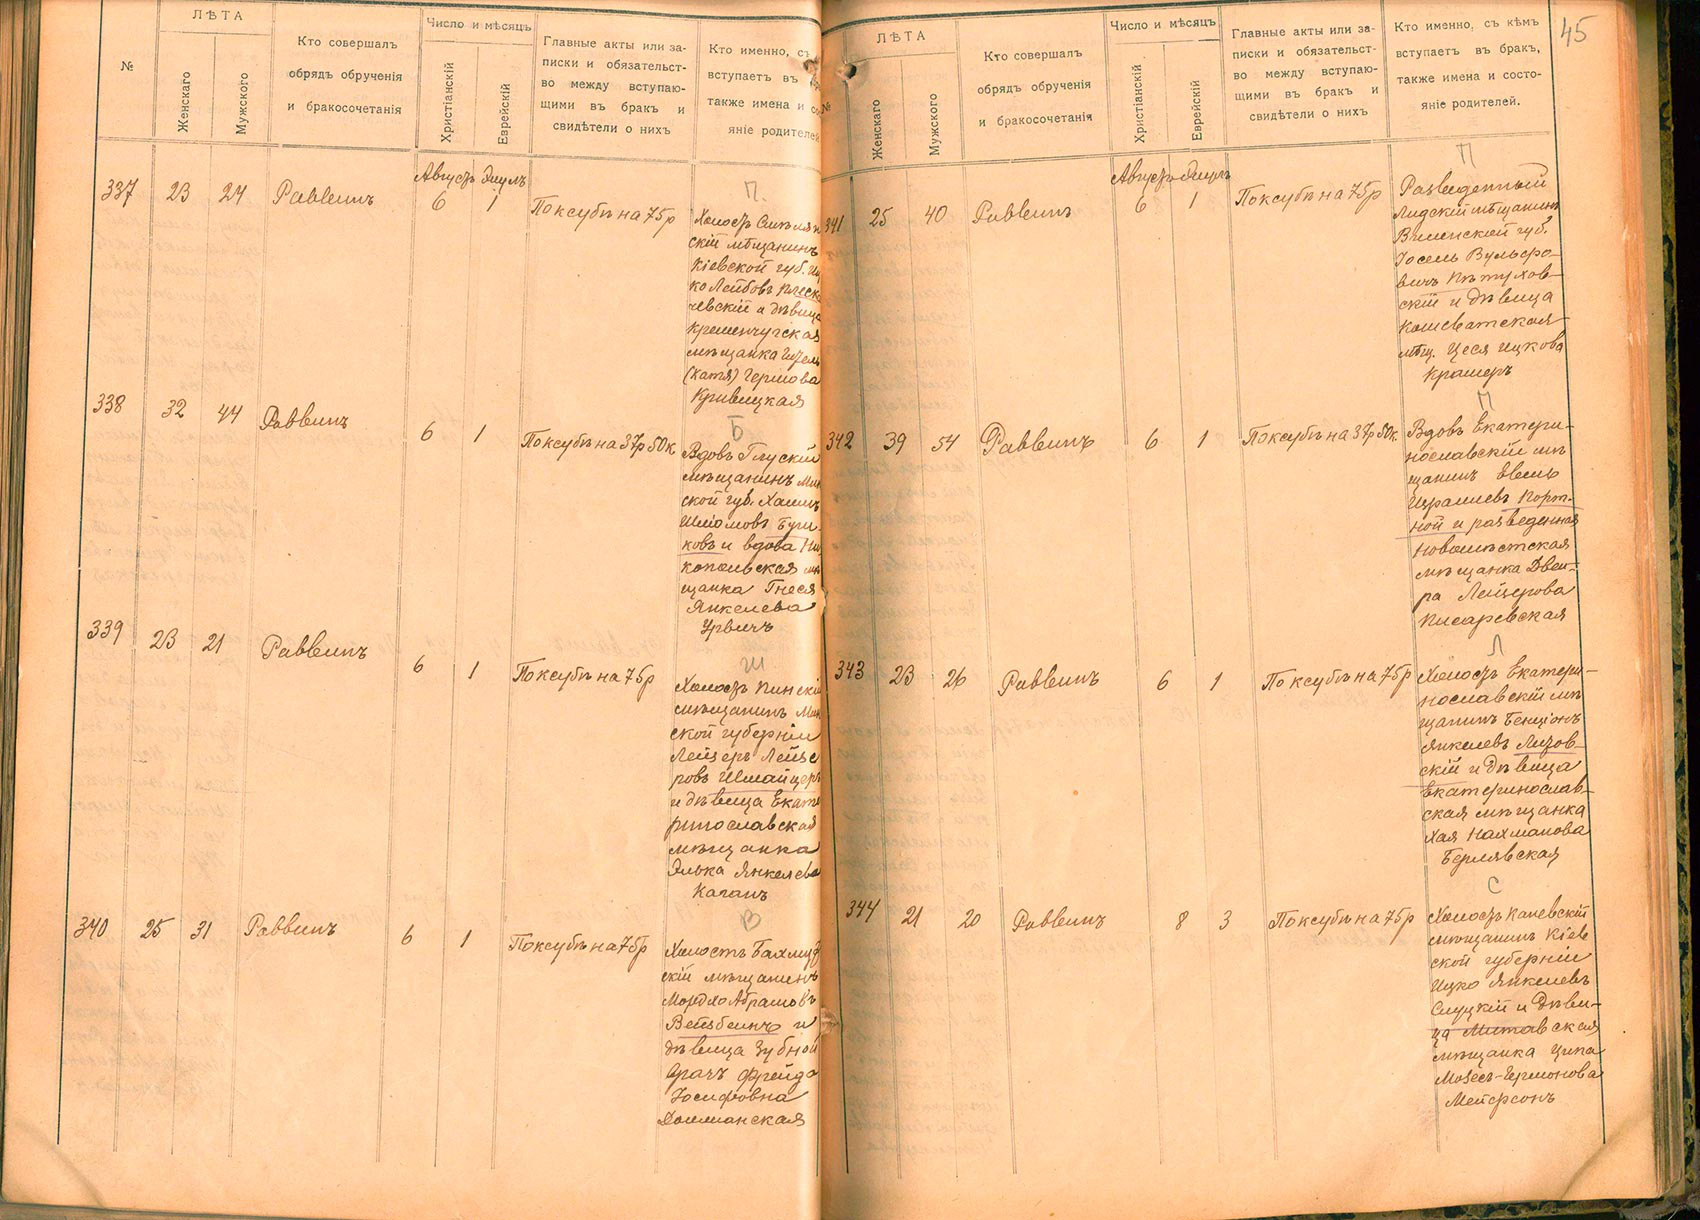 №
ЛѢТА
Женскаго
Мужского
Кто совершалъ
обрядъ обрученія
и бракосочетанія
Число и мѣсяцъ
Христіанскій
Еврейскій
Главные акты или за-
писки и обязательст-
во между вступаю-
щими въ бракъ и
свидѣтели о нихъ
Кто именно, съ
вступаетъ въ
также имена и со
яніе родителей
337
23
24
Раввинъ
Августъ Элулъ
6
1
По ксубѣ на 75р
П.
Холостъ
скій мѣщанинъ
Кіевской губ. Иц
ко Лейбовъ
чевскій и дѣвица
Кременчугская
мѣщанка
(Катя) Герцова
Кривицкая
338
32
44
Раввинъ
6
1
По ксубѣ на 37р 50к
Б
Вдовъ Глускій
мѣщанинъ Мин
ской губ. Хаимъ
Шломовъ
ковъ и вдова Ни
копольская мѣ
щанка Гнеся
Янкелева
Урвичъ
339
23
21
Раввинъ
6
1
По ксубѣ на 75р
Ш
Холостъ Пинскій
мѣщанинъ Мин
ской губерніи
Лейзеръ Лейзе
ровъ Шмайцеръ
и дѣвица Екате
ринославская
мѣщанка
Элька Янкелева
Каганъ
340
25
31
Раввинъ
6
1
По ксубѣ на 75р
В
Холостъ Бахмут
скій мѣщанинъ
Мордко Абрамовъ
Вейсбейнъ и
дѣвица Зубной
врачъ Фрейда
Іосифовна
Долманская
45
№
ЛѢТА
Женскаго
Мужского
Кто совершалъ
обрядъ обрученія
и бракосочетанія
Число и мѣсяцъ
Христіанскій
Еврейскій
Главные акты или за-
писки и обязательст-
во между вступаю-
щими въ бракъ и
свидѣтели о нихъ
Кто именно, съ кѣмъ
вступаетъ въ бракъ,
также имена и состо-
яніе родителей.
341
25
40
Раввинъ
Августъ Элулъ
6
1
По ксубѣ на 75р
П
Разведенный
Лидскій мѣщанинъ
Виленской губ.
Іосель Вульфо-
вичъ Пѣтухов-
скій и дѣвица
Кошеватская
мѣщ. Цеся Ицкова
Крамеръ
342
39
54
Раввинъ
6
1
По ксубѣ на 37р 50к.
П
Вдовъ Екатери-
нославскій мѣ
щанинъ Евель
Израилевъ Порт-
ной и разведенная
Новомѣстская
мѣщанка Двей-
ра Лейзерова
Писаревская
343
23
26
Раввинъ
6
1
По ксубѣ на 75р
Л
Холостъ Екатери-
нославскій мѣ
щанинъ Бенціонъ
Янкелевъ Лизов-
скій и дѣвица
Екатеринослав-
ская мѣщанка
Хая Нахманова
Берлявская
344
21
20
Раввинъ
8
3
По ксубѣ на 75р
С
Холостъ Каневскій
мѣщанинъ Кіев
ской губерніи
Ицко Янкелевъ
Слуцкій и дѣви-
ца Митавская
мѣщанка Ципа
Мозесъ-Гермонова
Мейерсонъ